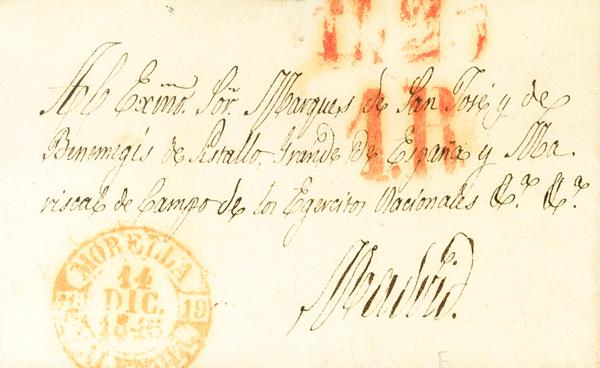 Al Exmo. Sor. Marques de San José y de
Benemegis de Sistallo, Grande de España y Ma
riscal de Campo de los Egercitos Nacionales &a. &a.
Madrid.
1R
MORELLA
14
DIC.
19